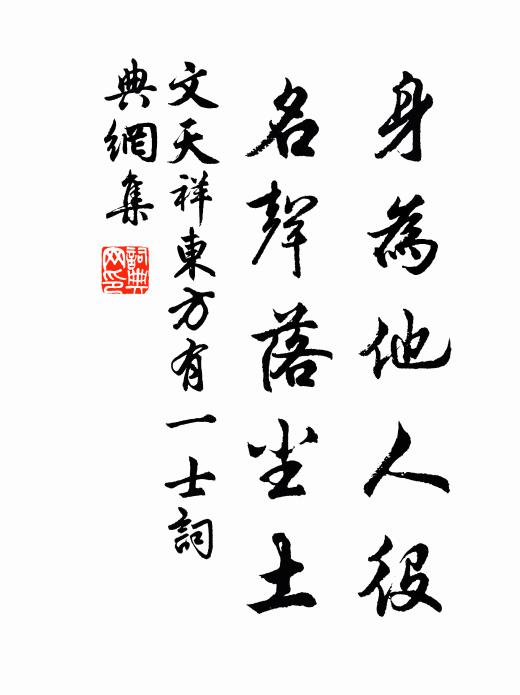 身為他人役
名聲落尘土
文天祥東方有一士詞
典網集
詞典
网印